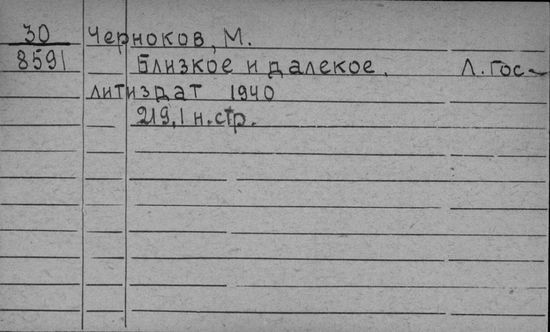 30 Черноков, М.
8591 Близкое и далекое. Л. Гос-
литиздат 1940
219,1 н.стр.